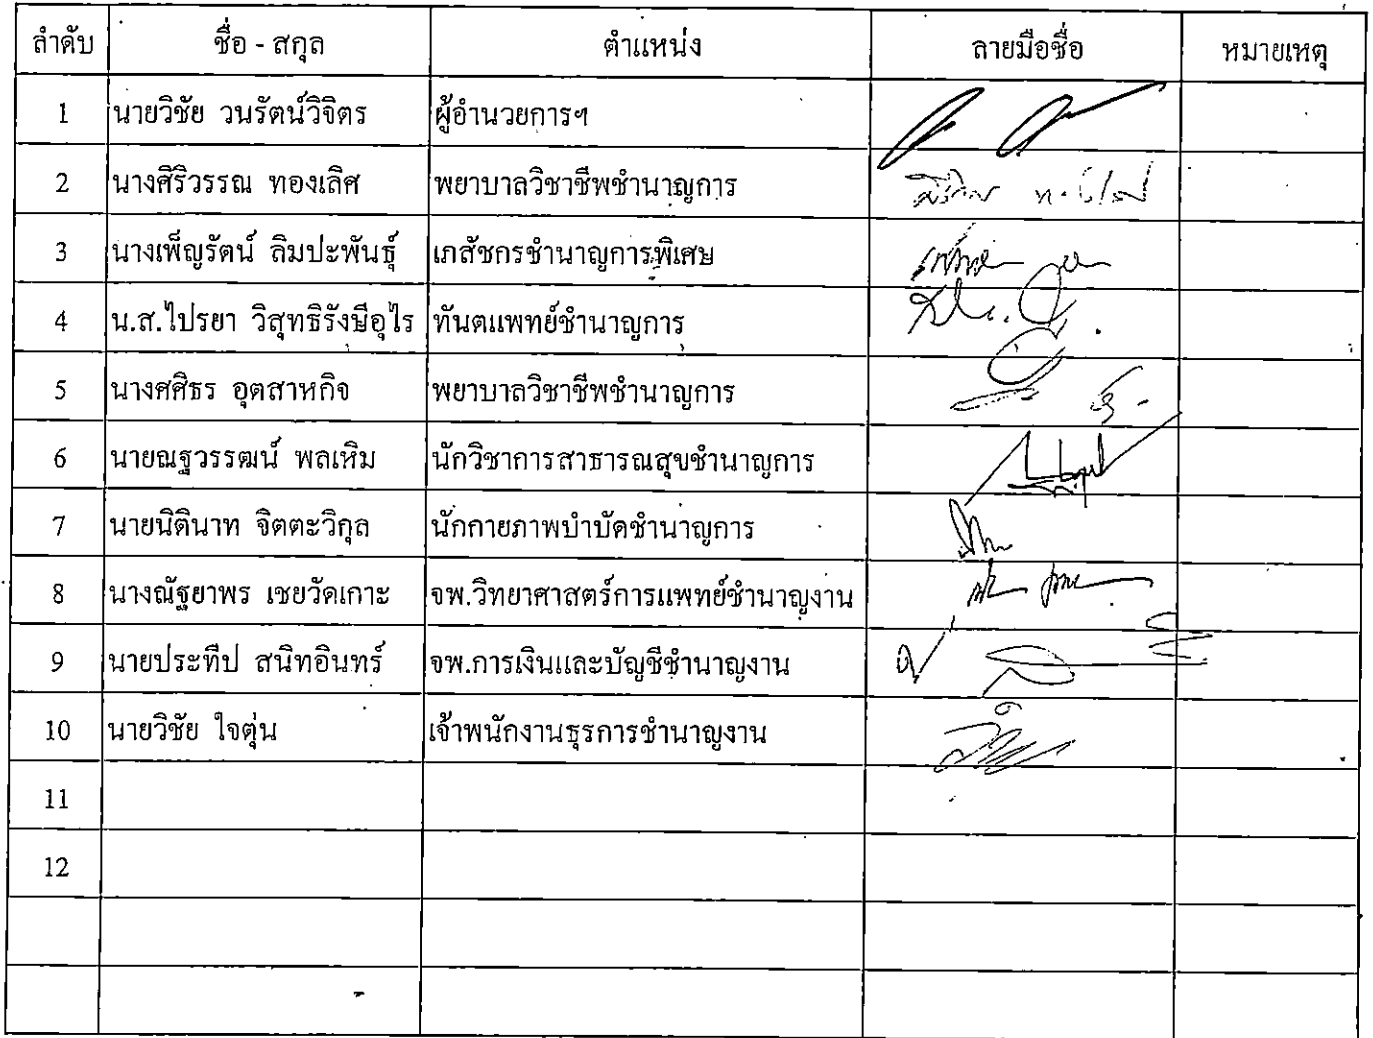 ลำดับ ชื่อ - สกุล ตำแหน่ง ลายมือชื่อ หมายเหตุ
1 นายวิชัย วนรัตน์วิจิตร ผู้อำนวยการฯ
2 นางศิริวรรณ ทองเลิศ พยาบาลวิชาชีพชำนาญการ
3 นางเพ็ญรัตน์ ลิมปะพันธุ์ เภสัชกรชำนาญการพิเศษ
4 น.ส.ไปรยา วิสุทธิรังษีอุไร ทันตแพทย์ชำนาญการ
5 นางศศิธร อุตสาหกิจ พยาบาลวิชาชีพชำนาญการ
6 นายณฐวรรฒน์ พลเหิม นักวิชาการสาธารณสุขชำนาญการ
7 นายนิตินาท จิตตะวิกุล นักกายภาพบำบัดชำนาญการ
8 นางณัฐยาพร เชยวัดเกาะ จพ.วิทยาศาสตร์การแพทย์ชำนาญงาน
9 นายประทีป สนิทอินทร์ จพ.การเงินและบัญชีชำนาญงาน
10 นายวิชัย ใจตุ่น เจ้าพนักงานธุรการชำนาญงาน
11
12